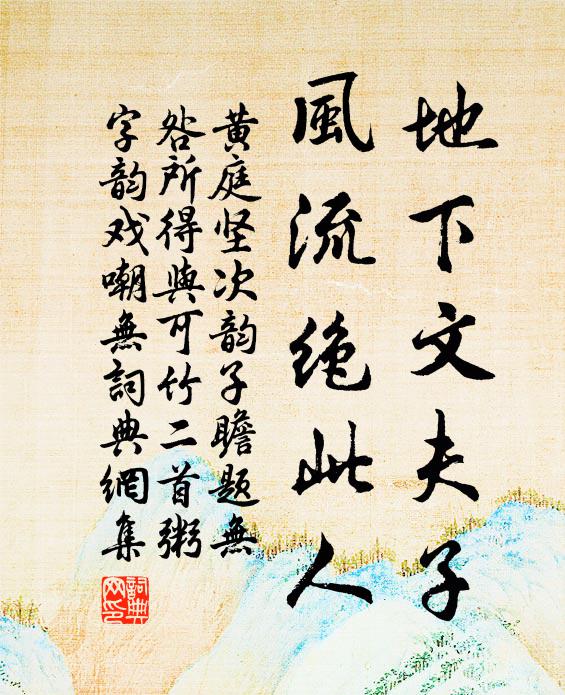 地下文夫子
風流絶此人
黄庭坚次韵子瞻题無
咎所得與可竹二首粥
字韵戏嘲無詞典網集
詞典
网印